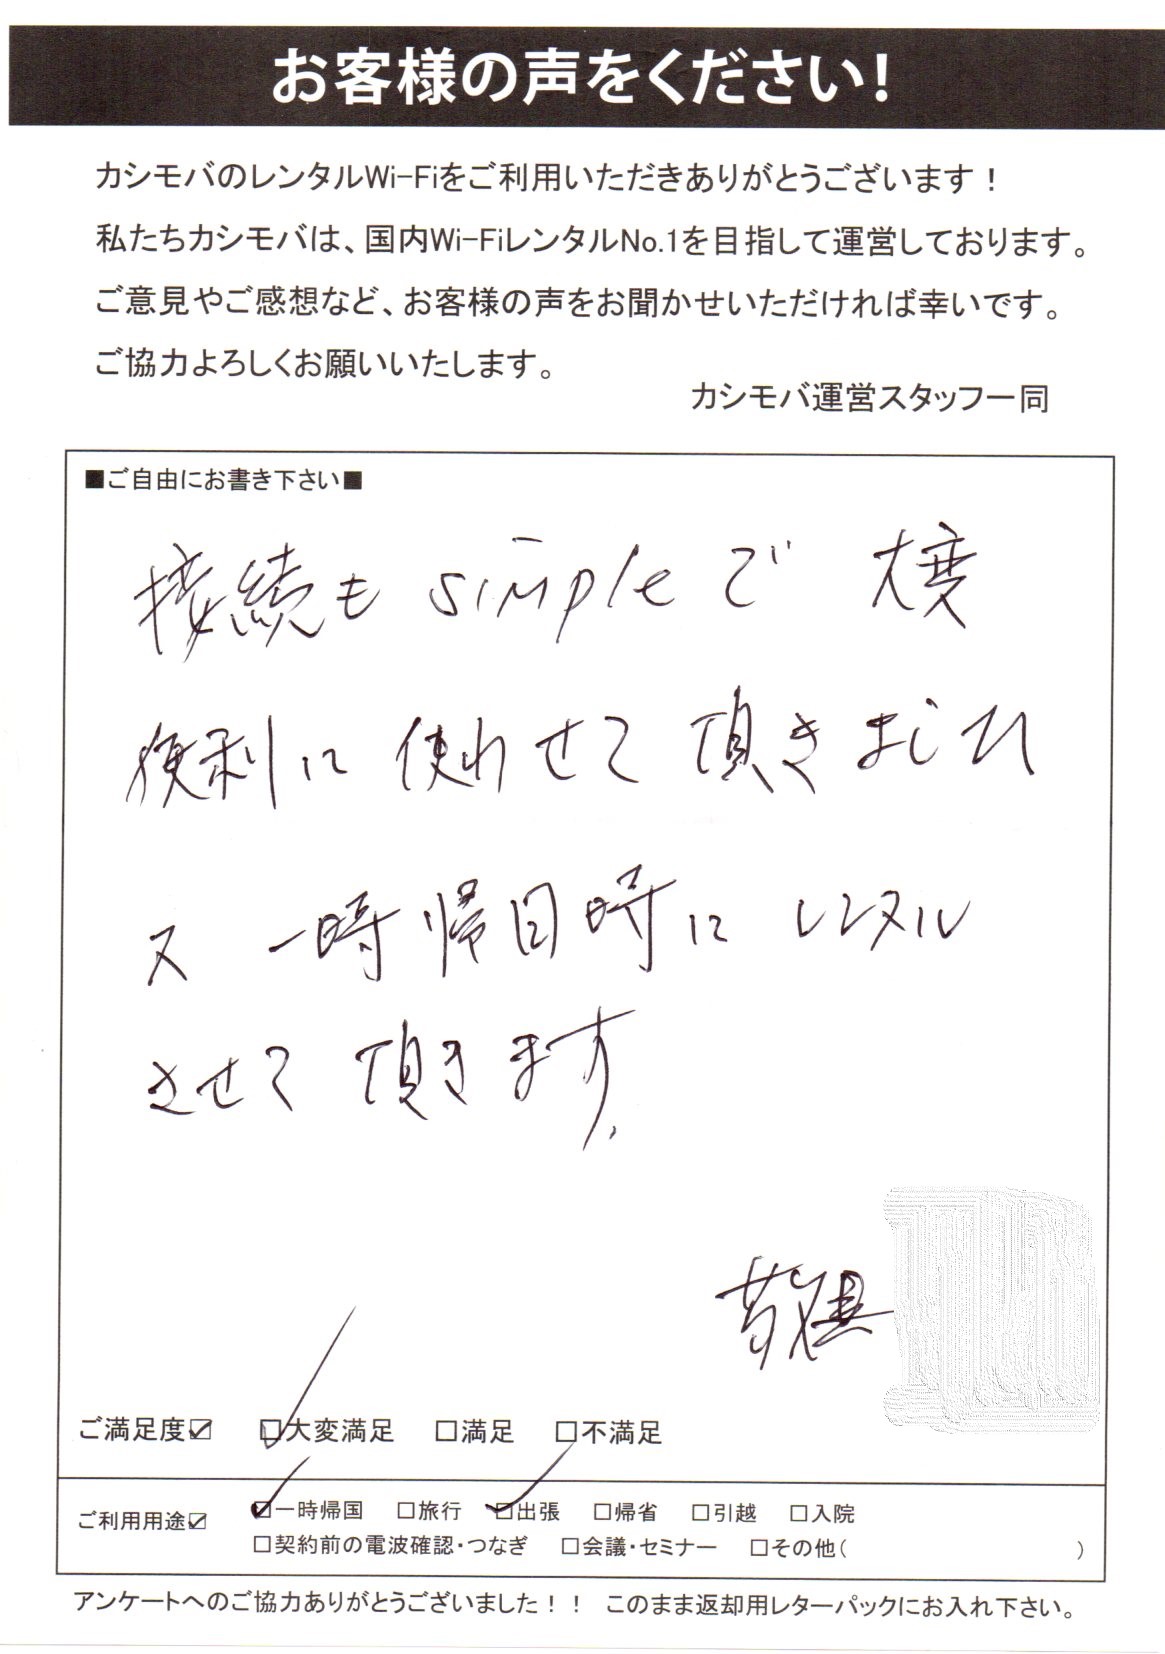 お客様の声をください!
カシモバのレンタルWi-Fiをご利用いただきありがとうございます！
私たちカシモバは、国内Wi-FiレンタルNo.1を目指して運営しております。
ご意見やご感想など、お客様の声をお聞かせいただければ幸いです。
ご協力よろしくお願いいたします。
カシモバ運営スタッフ一同
■ご自由にお書き下さい■
接続もsimpleで 大変
便利に 使わせて 頂きました
又 一時帰国時に レンタル
させて 頂きます.
敬具
ご満足度☑ ☑大変満足 □満足 □不満足
ご利用用途☑ ☑一時帰国 □旅行 ☑出張 □帰省 □引越 □入院
□契約前の電波確認・つなぎ □会議・セミナー □その他( )
アンケートへのご協力ありがとうございました！！ このまま返却用レターパックにお入れ下さい。